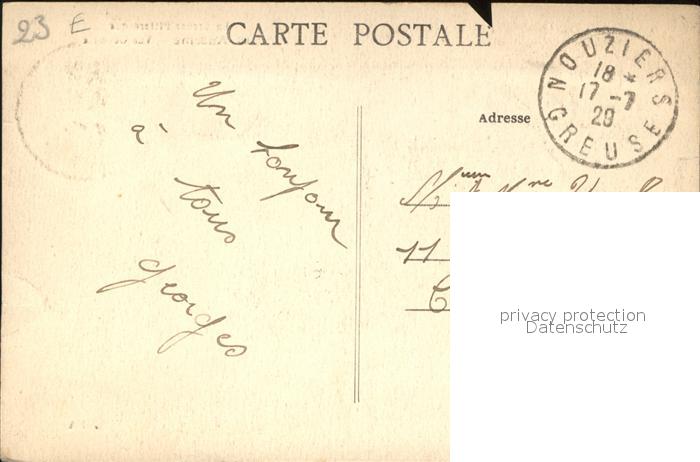 23 E
CARTE POSTALE
NOUZIERS
18 *
17 - 7
29
CREUSE
Adresse
Un bonjour
à
tous
Georges
11
privacy protection
Datenschutz